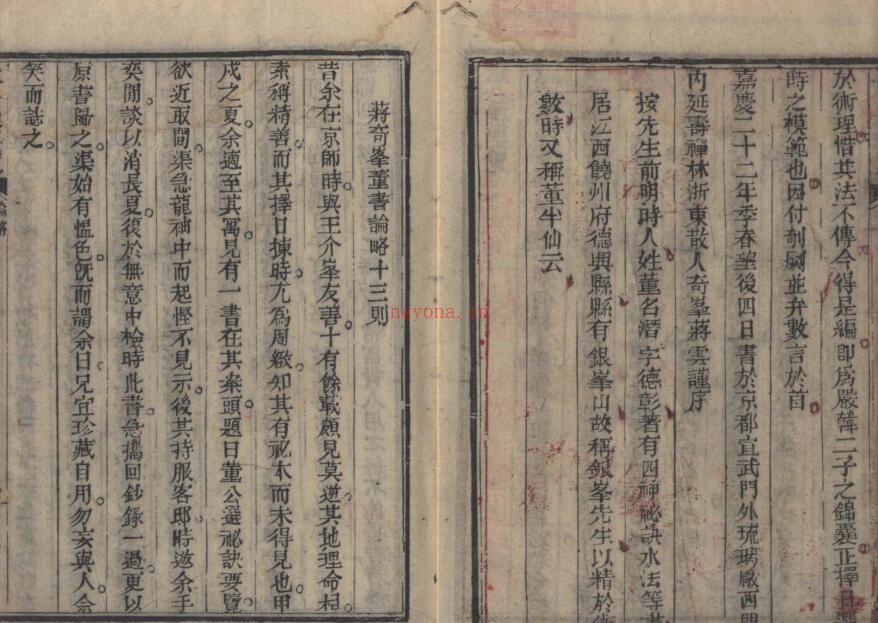 於術理惜其法不傳今得是編卽爲嚴韓二子之錦囊正擇日
時之模範也因付剞劂並弁數言於首
嘉慶二十二年季春望後四日書於京都宣武門外琉璃厰西門
內延壽禪林浙東散人奇峯蔣雲謹序
按先生前明時人姓董名潛字德彰著有四神祕訣水法等書
居江西饒州府德興縣縣有銀峯山故稱銀峯先生以精於術
數時又稱董半仙云
蔣奇峯董書論略十三則
昔余在京師時與王介峯友善十有餘載頗見莫逆其地理命相
素稱精善而其擇日揀時尤爲周緻知其有祕本而未得見也甲
戌之夏余適至其寓見有一書在其案頭題曰董公選祕訣要覽
欲近取間渠急籠袖中而起慳不見示後其持服客邸時邀余手
奕閒談以消長夏復於無意中檢時此書急攜回鈔錄一過更以
原書歸之渠始有慍色旣而謂余曰兄宜珍藏自用勿妄與人余
笑而誌之
論略
neyona.cn